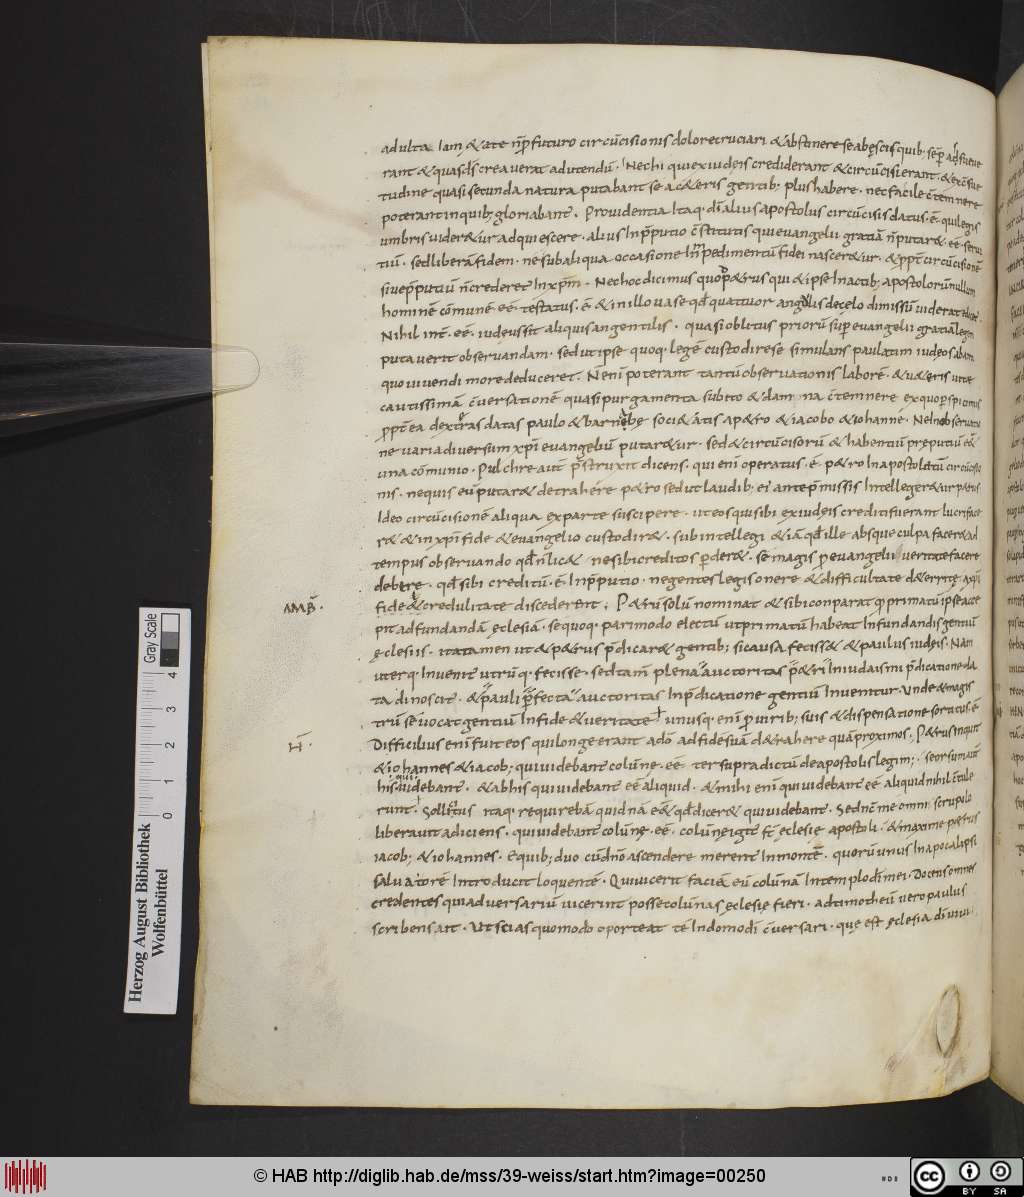 adulta Iam & ate n̄p̄futuro circūcisionis dolore cruciari & abstinere se ab ęscis quib; sēp̄ adsueue
rant & quas d̄s creaverat ad utendū. Nec hi qui ex iudeis crediderant & circūcisi erant & ex c̄sue
tudine quasi secunda natura putabant se ac&eris gentib; plus habere. nec facile c̄temnere
poterant in quib; gloriabant. Providentia Itaq; dī alius apostolus circūcisis datus. ē. qui legis
umbris vider&ur adquiescere. alius In p̄putio c̄stitutis qui evangelii gratiā n̄ putar& ēē servi
tiū. sed liberā fidem. ne sub aliqua occasione Inpedimentū fidei nascer&ur. & ppt̄ circūcisionē
sive p̄putiū n̄ crederet In xp̄m. Nec hoc dicimus quo p&rus qui & ipse In actib; apostolorū nullum
hominē cōmunē ēē testatus. ē. & in illo vase qđ quattuor angulis de cęlo dimissū viderat
Nihil int̄. ēē. iudeus sit aliquis an gentilis. quasi oblitus priorū sup̄ evangelii gratiā legem
putaverit observandam. sed ut ipse quoq. legē custodire se simulans paulatim iudeos ab an
quo vivendi more deduceret. N̄ enī poterant tantū observationis laborē. & v&eris vitę
cautissimā c̄versationē quasi purgamenta subito & damna c̄temnere ex quo perspicimus
ppt̄ea dextras datas paulo & barnabę soci&atis a p&ro & iacobo & iohanne. Ne In observatio
ne varia diversum xp̄i evangeliū putar&ur. sed & circūcisorū & habentiū pręputiū
una cōmunio. Pulchre aut̄ p̄struxit dicens. qui enī operatus. ē. p&ro In apostolatū circūcisio
nis. ne quis eū putar& detrahere p&ro sed ut laudib; ei antep̄missis Intelleger&ur p&rus
Ideo circūcisionē aliqua ex parte suscipere. ut eos qui sibi ex iudęis crediti fuerant lucriface
r& & in xp̄i fide & evangelio custodir&. subintellegi & iā qđ ille absque culpa facer& ad
tempus observando qđ n̄ lic& ne sibi creditos p̄der&. se magis p̄ evangelii veritate facere
debere. qđ sibi creditū. ē In p̄putio. ne gentes legis onere & difficultate d&errite a xp̄i
fide & credulitate discederent; P&rū solū nominat & sibi conparat qr primatū ipse acce
pit ad fundandā ęclesiā. se quoq. pari modo electū ut primatū habeat In fundandis gentiū
ęclesiis. ita tamen ut & p&rus p̄dicar& gentib; si causa fecisset & paulus iudęis. Nam
uterq. Invenit utrūq. fecisse. sed tam plena auctoritas p&ri In iudaismi p̄dicatione da
ta dinoscit. & pauli p̄fecta auctoritas In p̄dicatione gentiū Invenitur. Unde & magis
trū se vocat gentiū In fide & veritate unusq. enī p̄ virib; suis & dispensatione sortitus. ē.
Difficilius enī fuit eos qui longe erant a dō ad fidē suā d&rahere quā proximos. P&rus inquit
AMB̄.
H̄.
& iohannes & iacob; qui videbant colūne. ēē ter supra dictū de apostolis legim;. seorsum aut
qui
his videbant. & ab his qui videbant ēē aliquid. & mihi enī qui videbant ēē aliquid nihil c̄tule
runt. Sollicitus itaq. requirebā quid nā e& qđ dicer& qui videbant. Sed nc̄ me omni scrupolo
liberavit adiciens. qui videbant colūnę. ēē. colūnę igit̄ st̄ ęclesię apostoli. & maxime p&rus
iacob; & iohannes. E quib; duo cū dnō ascendere merent In montē. quorū unus In apocalipsi
salvatorē Introducit loquentē. Qui vicerit faciā eū colūna In templo dī mei. Docens omnes
credentes qui adversariū vicerint posse colūnas ęclesię fieri. ad timotheū vero paulus
scribens ait. Ut scias quomodo oporteat te In domo dī c̄versari. quę est ęclesia dī vivi
Herzog August Bibliothek
Wolfenbüttel
0 1 2 3 4
Gray Scale
© HAB http://diglib.hab.de/mss/39-weiss/start.htm?image=00250
cc BY SA